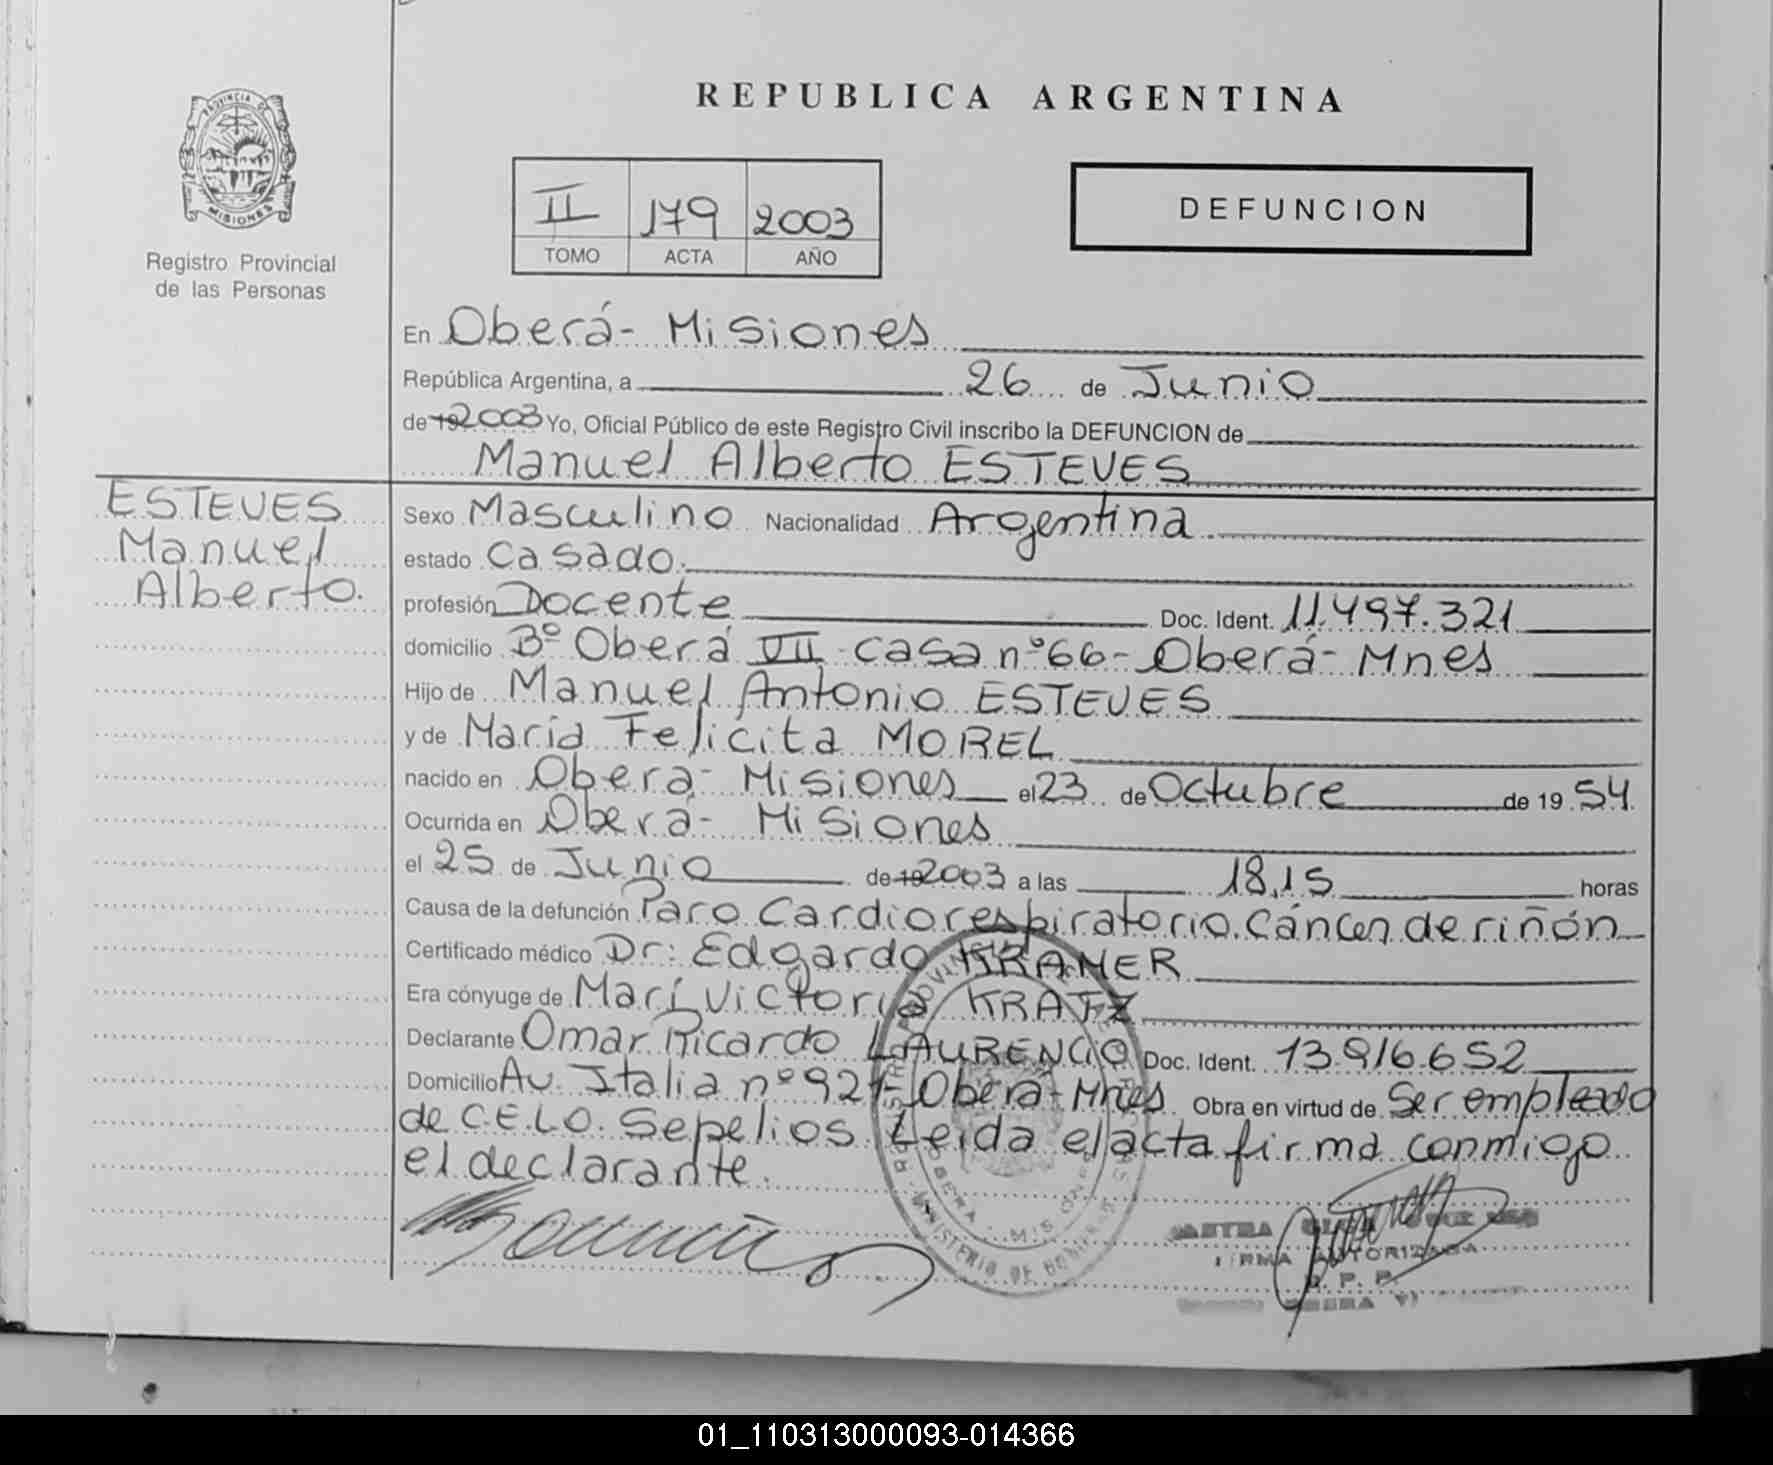 REPUBLICA ARGENTINA
PROVINCIA DE
MISIONES
Registro Provincial
de las Personas
II 179 2003
TOMO ACTA AÑO
DEFUNCION
En Oberá - Misiones
República Argentina, a 26 de Junio
de 19 2003 Yo, Oficial Público de este Registro Civil inscribo la DEFUNCION de
Manuel Alberto ESTEVES
ESTEVES
Manuel
Alberto.
Sexo Masculino Nacionalidad Argentina
estado Casado.
profesión Docente Doc. Ident. 11.497.321
domicilio Bº Oberá VII casa nº 66 - Oberá - Mnes
Hijo de Manuel Antonio ESTEVES
y de María Felicita MOREL
nacido en Oberá - Misiones el 23 de Octubre de 19 54
Ocurrida en Oberá - Misiones
el 25 de Junio de 19 2003 a las 18,15 horas
Causa de la defunción Paro Cardiorespiratorio. Cáncer de riñón
Certificado médico Dr: Edgardo KRAMER
Era cónyuge de Marí Victoria KRATZ
Declarante Omar Ricardo LAURENCIO Doc. Ident. 13.916.652
Domicilio Av. Italia nº 921 - Oberá - Mnes Obra en virtud de Ser empleado
de C.E.L.O. Sepelios Leida el acta firma conmigo
el declarante.
MINISTERIO DE GOBIERNO
OBERA - MISIONES
FIRMA AUTORIZADA
R. P. P.
01_110313000093-014366